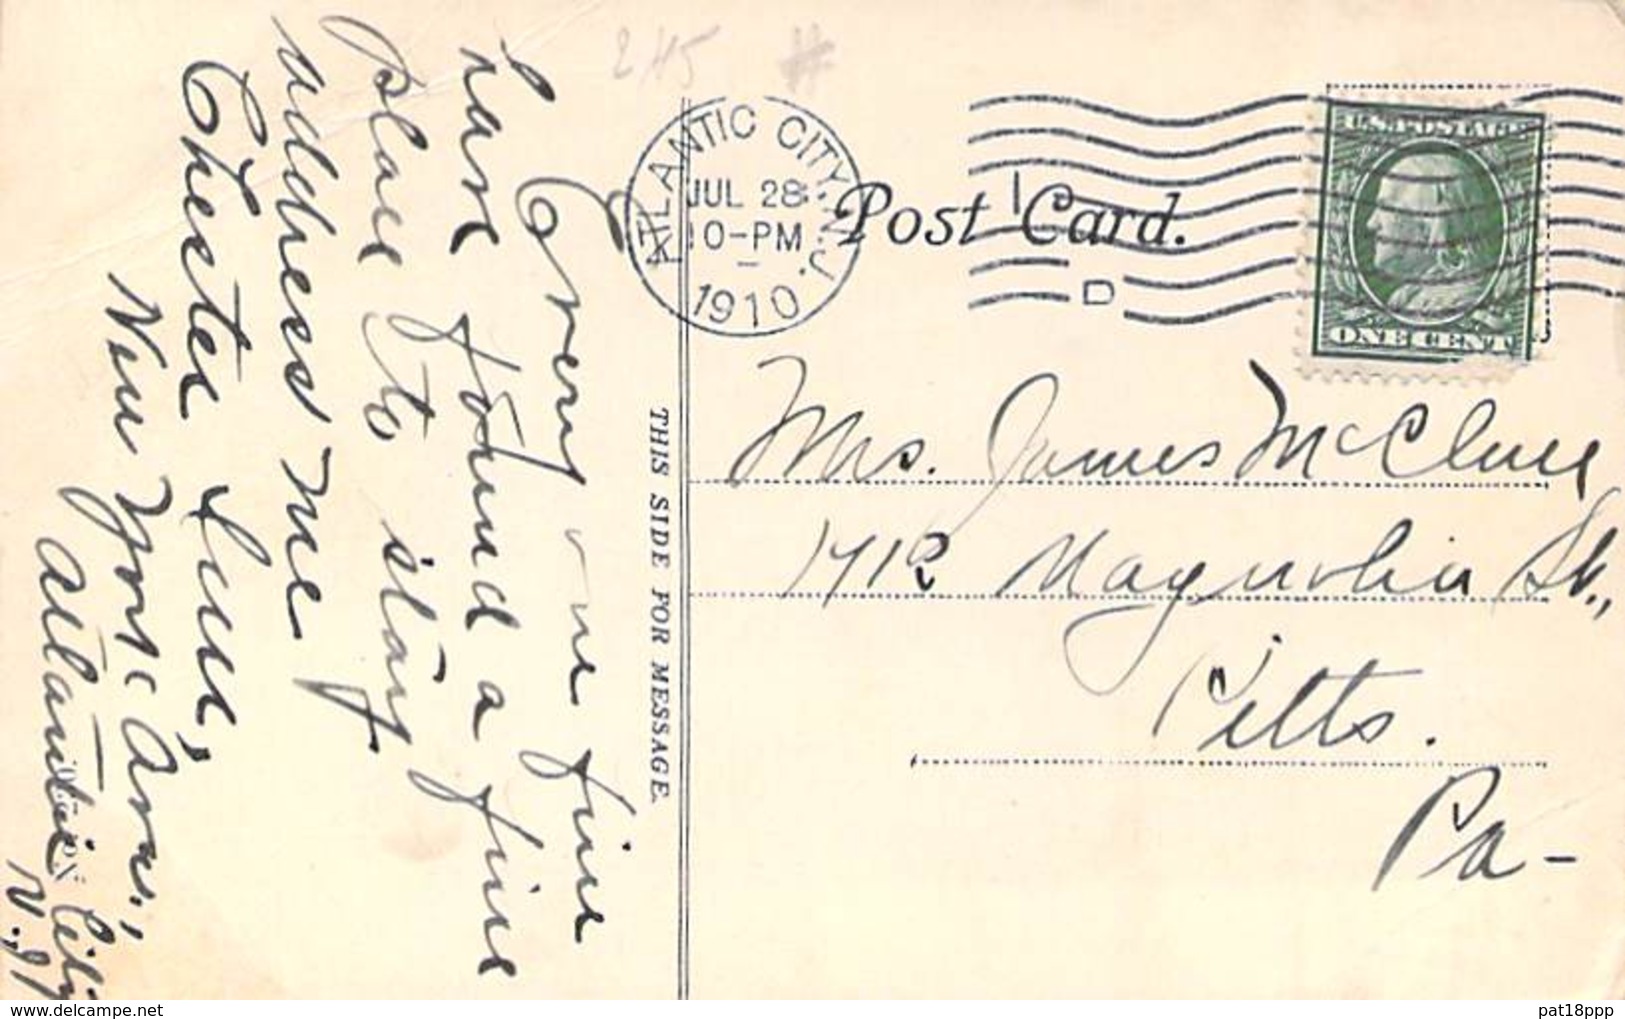 245 #
ATLANTIC CITY, N.J.
JUL 28
10-PM
1910
Post Card.
D
U.S. POSTAGE
ONE CENT
THIS SIDE FOR MESSAGE.
Every one fine
have found a fine
place to stay
address me
Chester Inn,
New York Ave.,
Atlantic City
N.J.
Mrs. James McClure
1712 Magnolia St.,
Pitts.
Pa-
delcampe.net
pat18ppp